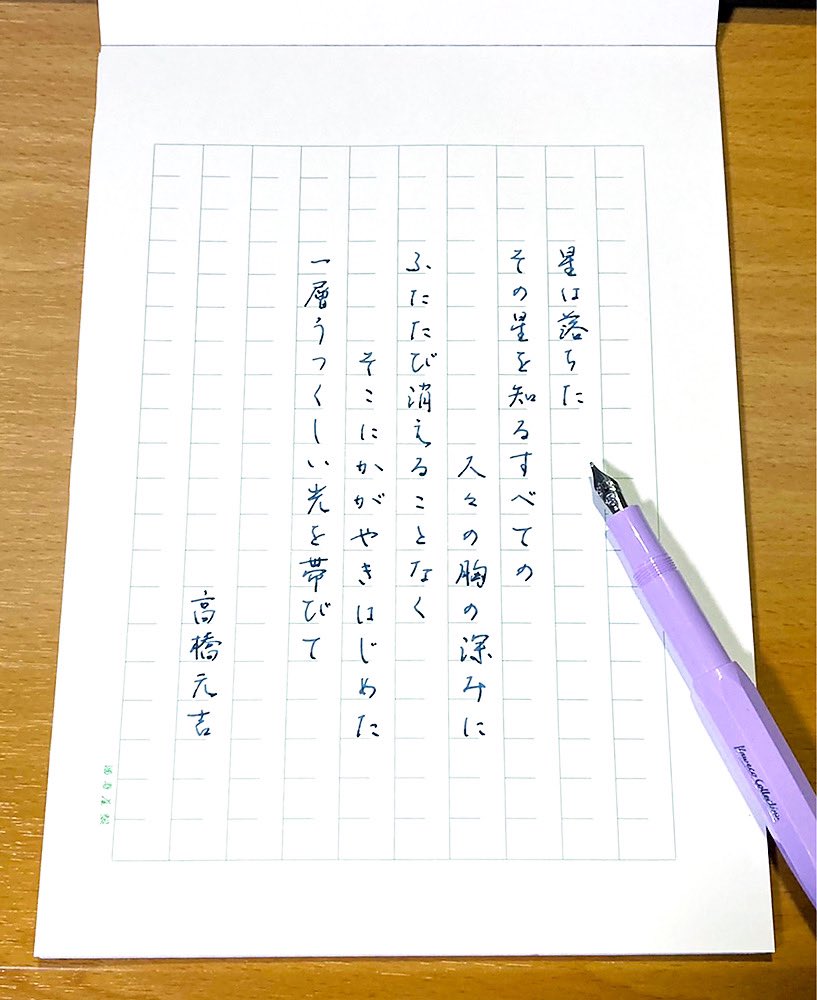 星は落ちた
その星を知るすべての
人々の胸の深みに
ふたたび消えることなく
そこにかがやきはじめた
一層うつくしい光を帯びて
高橋元吉
Kaweco Collection